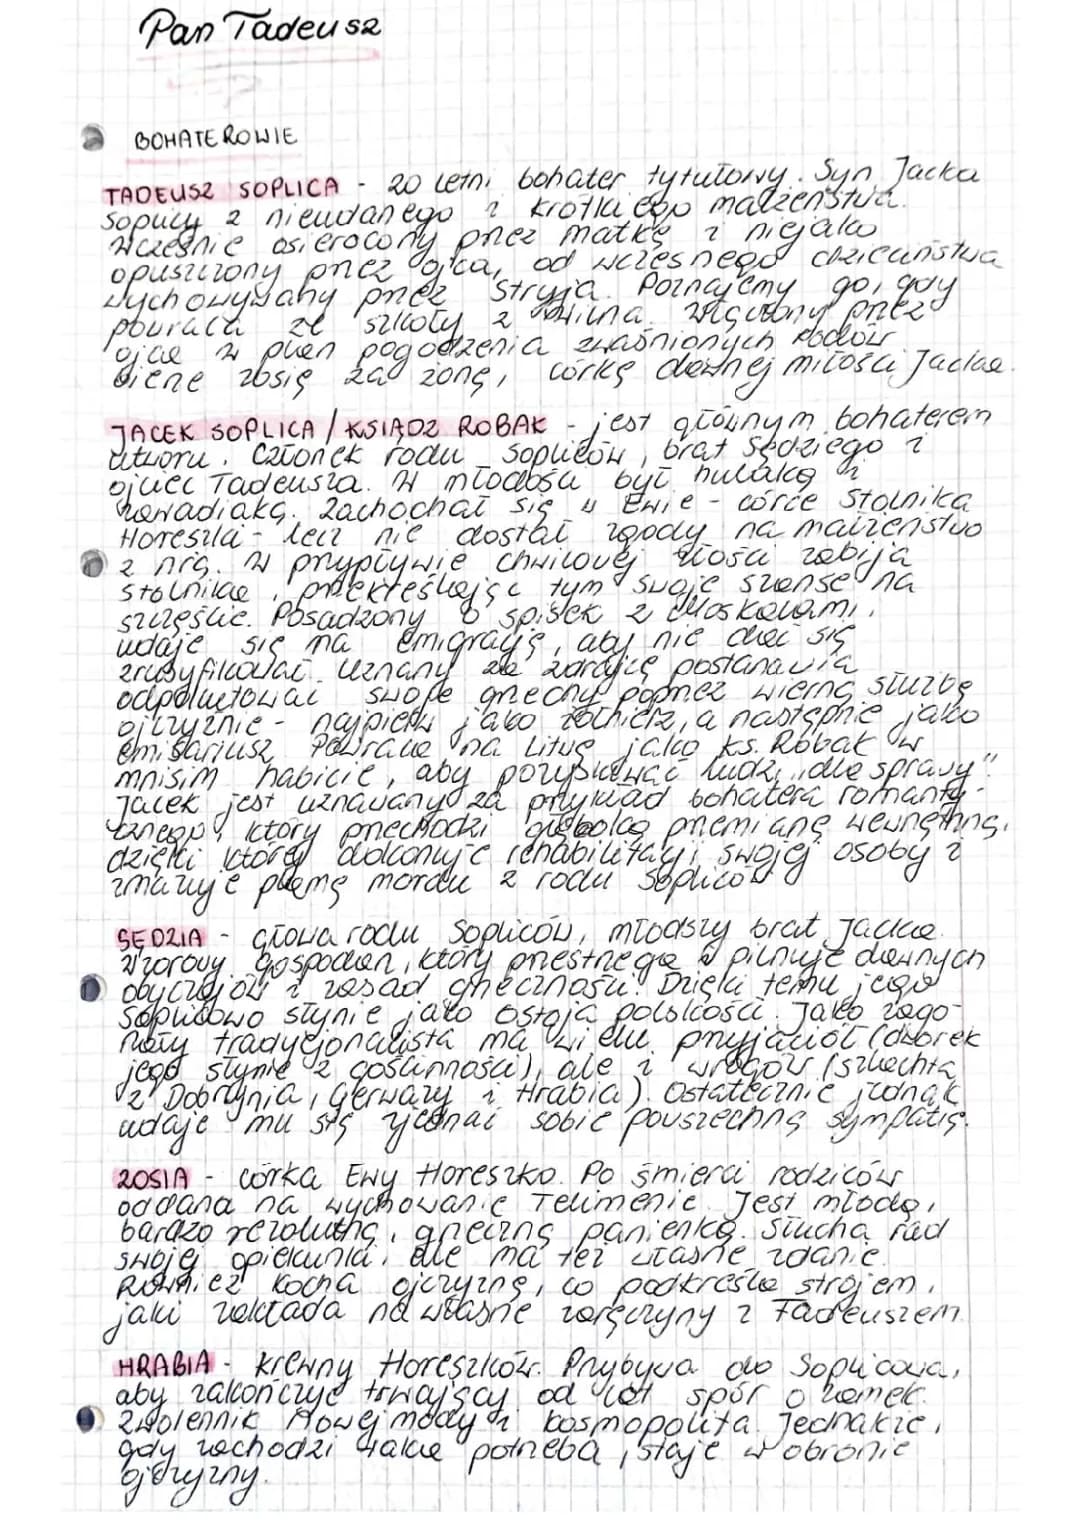 Pan Tadeusz
BOHATEROWIE
TADEUSZ SOPLICA - 20 letni bohater tytułowy. Syn Jacka
Soplicy z nieudanego i krótkiego małżeństwa.
Wcześnie osierocony przez matkę i niejako
opuszczony przez ojca, od wczesnego dzieciństwa
wychowywany przez stryja. Poznajemy go, gdy
powraca ze szkoły z Wilna. Włączony przez
ojca w plan pogodzenia zwaśnionych rodów
bierze Zosię za żonę, córkę dawnej miłości Jacka.
JACEK SOPLICA / KSIĄDZ ROBAK - jest głównym bohaterem
utworu. Członek rodu Sopliców, brat Sędziego i
ojciec Tadeusza. W młodości był hulaką i
zawadiaką. Zachochał się w Ewie - córce Stolnika
Horeszki - lecz nie dostał zgody na małżeństwo
z nią. W przypływie chwilowej złości zabija
stolnika, przekreślając tym swoje szanse na
szczęście. Posądzony o spisek z Moskalami,
udaje się na emigrację, aby nie dać się
zrusyfikować. Uznany za zdrajcę postanawia
odpokutować swoje grzechy poprzez wierną służbę
ojczyźnie - najpierw jako żołnierz, a następnie jako
emisariusz. Powraca na Litwę jako ks. Robak w
mnisim habicie, aby pozyskiwać ludzi „dla sprawy".
Jacek jest uznawany za przykład bohatera romanty-
cznego, który przechodzi głęboką przemianę wewnętrzną,
dzięki której dokonuje rehabilitacji swojej osoby i
zmazuje plamę mordu z rodu Sopliców.
SĘDZIA - głowa rodu Sopliców, młodszy brat Jacka.
Wzorowy gospodarz, który przestrzega i pilnuje dawnych
obyczajów i zasad grzeczności. Dzięki temu jego
Soplicowo słynie jako ostoja polskości. Jako zago-
rzały tradycjonalista ma wielu przyjaciół (dworek
jego słynie z gościnności), ale i wrogów (szlachta
z Dobrzynia, Gerwazy i Hrabia). Ostatecznie jednak
udaje mu się zjednać sobie powszechną sympatię.
ZOSIA - córka Ewy Horeszko. Po śmierci rodziców
oddana na wychowanie Telimenie. Jest młodą,
bardzo rezolutną, grzeczną panienką. Słucha rad
swojej opiekunki, ale ma też własne zdanie.
Również kocha ojczyznę, co podkreśla strojem,
jaki zakłada na własne zaręczyny z Tadeuszem.
HRABIA - krewny Horeszków. Przybywa do Soplicowa,
aby zakończyć trwający od lat spór o zamek.
Zwolennik nowej mody i kosmopolita. Jednakże,
gdy zachodzi taka potrzeba, staje w obronie
ojczyzny.